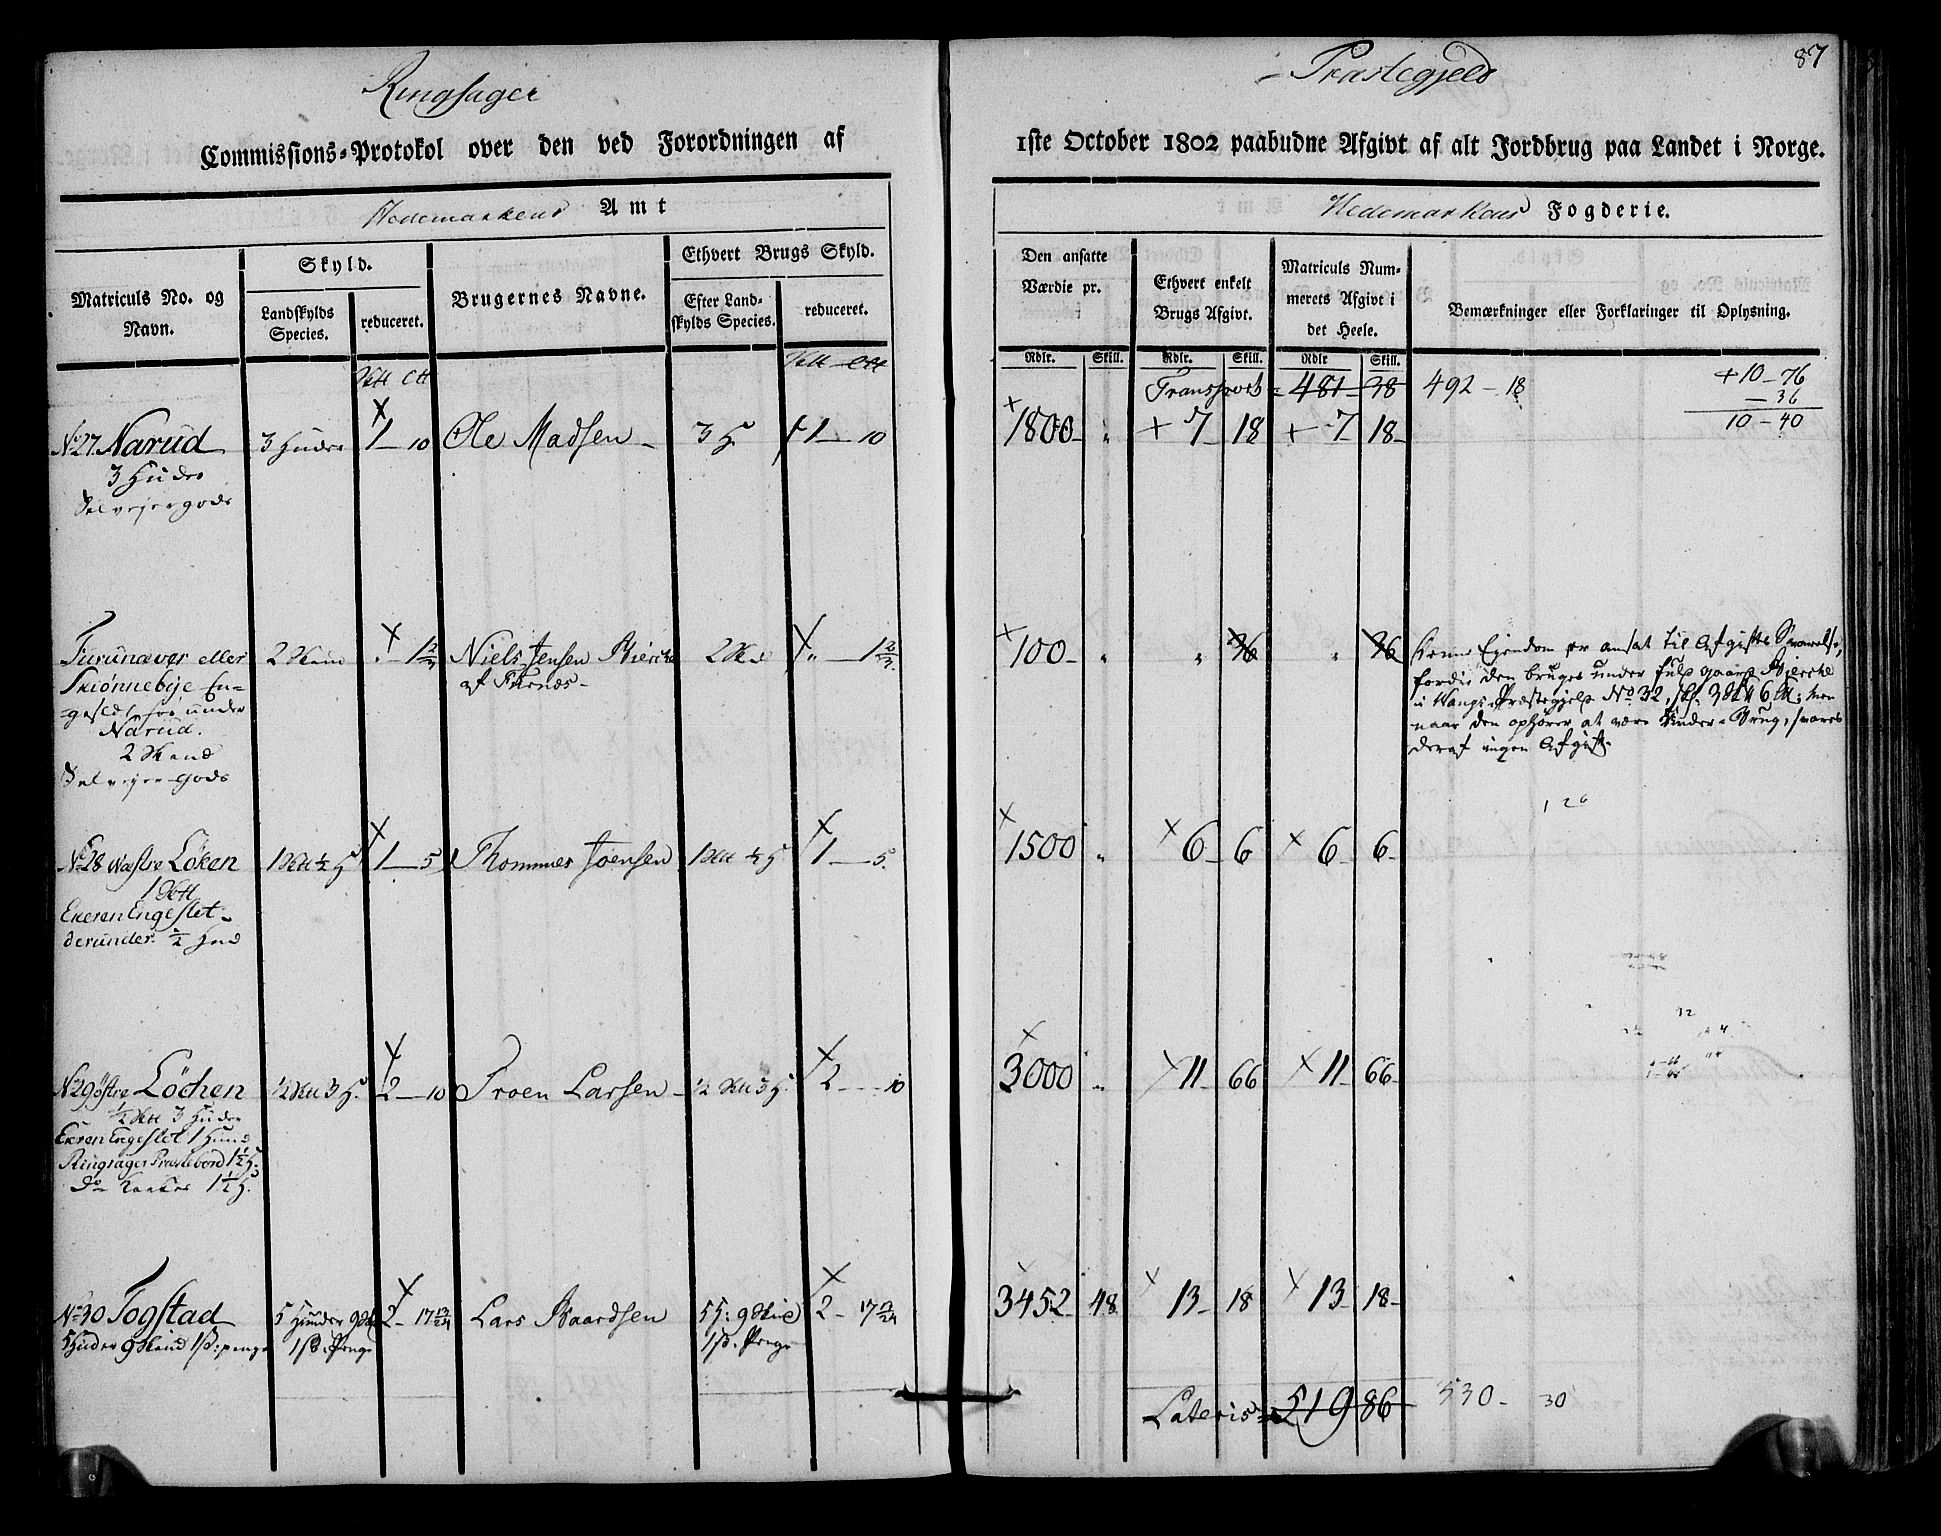 Ringsager
Præstegjeld
87
Commissions-Protokol over den ved Forordningen af
1ste October 1802 paabudne Afgivt af alt Jordbrug paa Landet i Norge.
Hedemarkens Amt
Hedemarkens Fogderie.
Matriculs No. og Navn.
Skyld.
Landskylds Species.
reduceret.
Brugernes Navne.
Ethvert Brugs Skyld.
Efter Landskylds Species.
reduceret.
Den ansatte Værdie pr.
Ethvert enkelt Brugs Afgivt.
Matriculs Nummerets Afgivt i det Heele.
Bemærkninger eller Forklaringer til Oplysning.
Rdlr. Skill. Rdlr. Skill. Rdlr Skill.
Transport 481 38 492 - 18
+ 10 - 76
- 36
10 - 40
No 27 Narud 3 Huder 1 - 10 Ole Madsen 3 H. 1 - 10 1800 " + 7 18 + 7 18
3 Huder
Selveiergods
Furunæver eller 2 Skind " - 1 2/3 Niels Jensen Bierche 2 Skd " - 1 2/3 100 " " 36 " 36
Skiønnebye En-
geslette under
Narud.
2 Skind
Selveiergods
af Furnæs
Denne Eiendom er ansat til Afgifts Svarelse,
fordi den bruges under fulde gaard Bierche
i Vangs Præstegjeld No 32,
naar den ophører at være Under-Brug, svares
deraf ingen Afgift.
1 26
No 28 Wæstre Løken 1 Sktt 1/2 H 1 - 5 Thommes Joensen 1 Sktt 1/2 H 1 - 5 1500 " 6 6 6 6
1 Sktt
Ekeren Engeslet
derunder 1/2 Hud
No 29 Østre Löchen 1/2 Sktt 3 H. 2 - 10 Troen Larsen 1/2 Sktt 3 H. 2 - 10 3000 " 11 66 11 66
1/2 Sktt 3 Huder
Ekeren Engeslet 1 Hund
Ringsager Præstebord 1 1/2 H.
Do Kirke 1 1/2 H.
No 30 Togstad 5 Huder 9 Sk 2 - 17 Lars Baardsen 5 H: 9 Skid 2 - 17 3452 48 13 18 13 18
5 Huder 9 Skind 1 ß: penge 1 ß. Penge 1 ß. Penge
Lateris 519 86 530 - 30